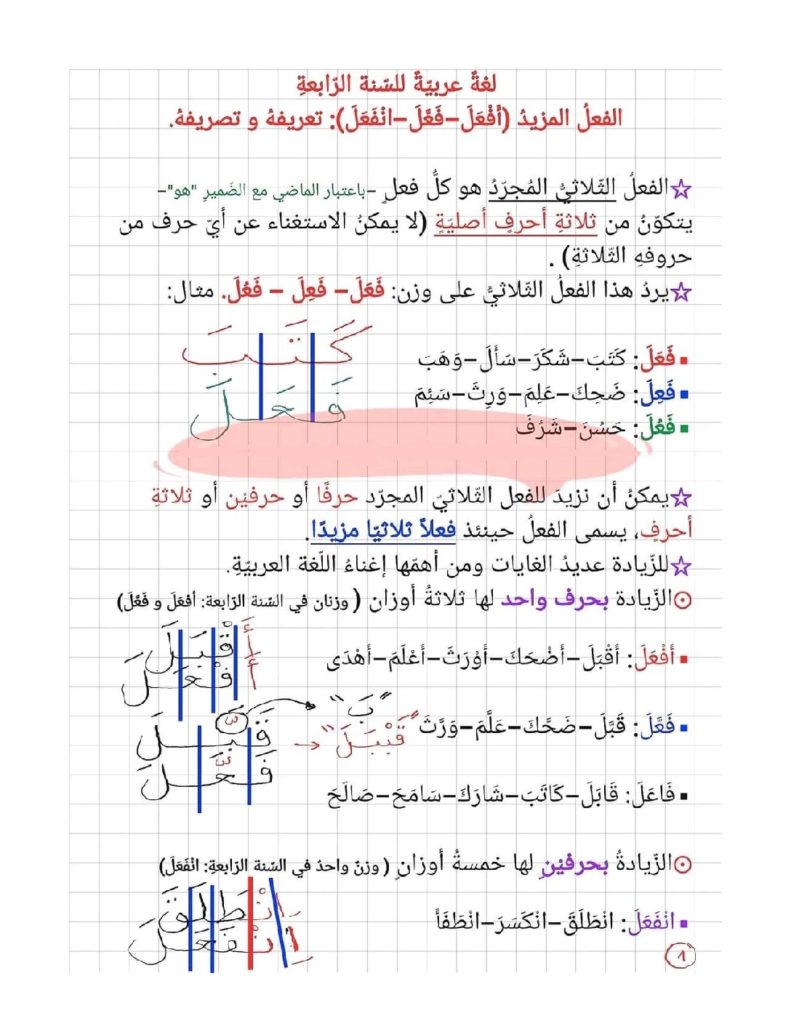 لغةٌ عربيّةٌ للسّنة الرّابعةِ
الفعلُ المزيدُ (أفْعَلَ–فَعَّلَ–انْفَعَلَ): تعريفهُ و تصريفهُ.
☆الفعلُ الثّلاثيُّ المُجرّدُ هو كلُّ فعلٍ –باعتبار الماضي مع الضّميرِ "هو"–
يتكوّنُ من ثلاثةِ أحرفٍ أصليّةٍ (لا يمكنُ الاستغناء عن أيّ حرف من
حروفهِ الثّلاثةِ) .
☆يردُ هذا الفعلُ الثّلاثيُّ على وزن: فَعَلَ– فَعِلَ – فَعُلَ. مثال:
كَتَبَ
▪فَعَلَ: كَتَبَ–شَكَرَ–سَألَ–وَهَبَ
فَعَلَ
▪فَعِلَ: ضَحِكَ–عَلِمَ–وَرِثَ–سَئِمَ
▪فَعُلَ: حَسُنَ–شَرُفَ
☆يمكنُ أن نزيدَ للفعل الثّلاثيّ المجرّد حرفًا أو حرفيْن أو ثلاثةِ
أحرفٍ، يسمى الفعلُ حينئذ فعلاً ثلاثيّا مزيدًا.
☆للزّيادة عديدُ الغايات ومن أهمّها إغناءُ اللّغة العربيّةِ.
⊙الزّيادة بحرف واحد لها ثلاثةُ أوزان ( وزنان في السّنة الرّابعة: أفعَلَ و فَعَّلَ)
أَقْبَلَ
▪أفْعَلَ: أقْبَلَ–أضْحَكَ–أوْرَثَ–أعْلَمَ–أهْدَى
أَفْعَلَ
"بَ"
▪فَعَّلَ: قَبَّلَ–ضَحَّكَ–عَلَّمَ–وَرَّثَ
قَبَّلَ → "قَبْبَلَ"
فَعَّلَ
▪فَاعَلَ: قَابَلَ–كَاتَبَ–شَارَكَ–سَامَحَ–صَالَحَ
⊙الزّيادةُ بحرفيْنِ لها خمسةُ أوزانِ ( وزنٌ واحدُ في السّنة الرّابعةِ: انْفَعَلَ)
اِنْطَلَقَ
▪انْفَعَلَ: انْطَلَقَ–انْكَسَرَ–انْطَفَأَ
اِنْفَعَلَ
1